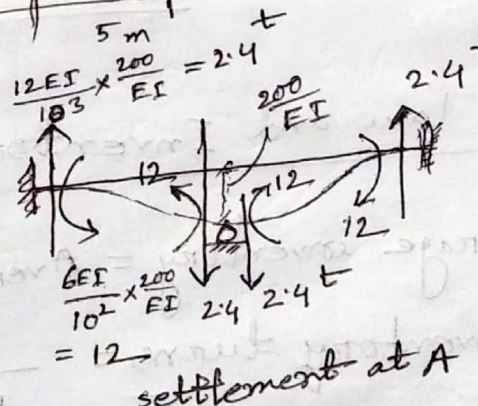 5 m
12EI/10³ × 200/EI = 2.4 t
200/EI
2.4
12 12
12
6EI/10² × 200/EI 2.4 2.4 t
= 12
settlement at A